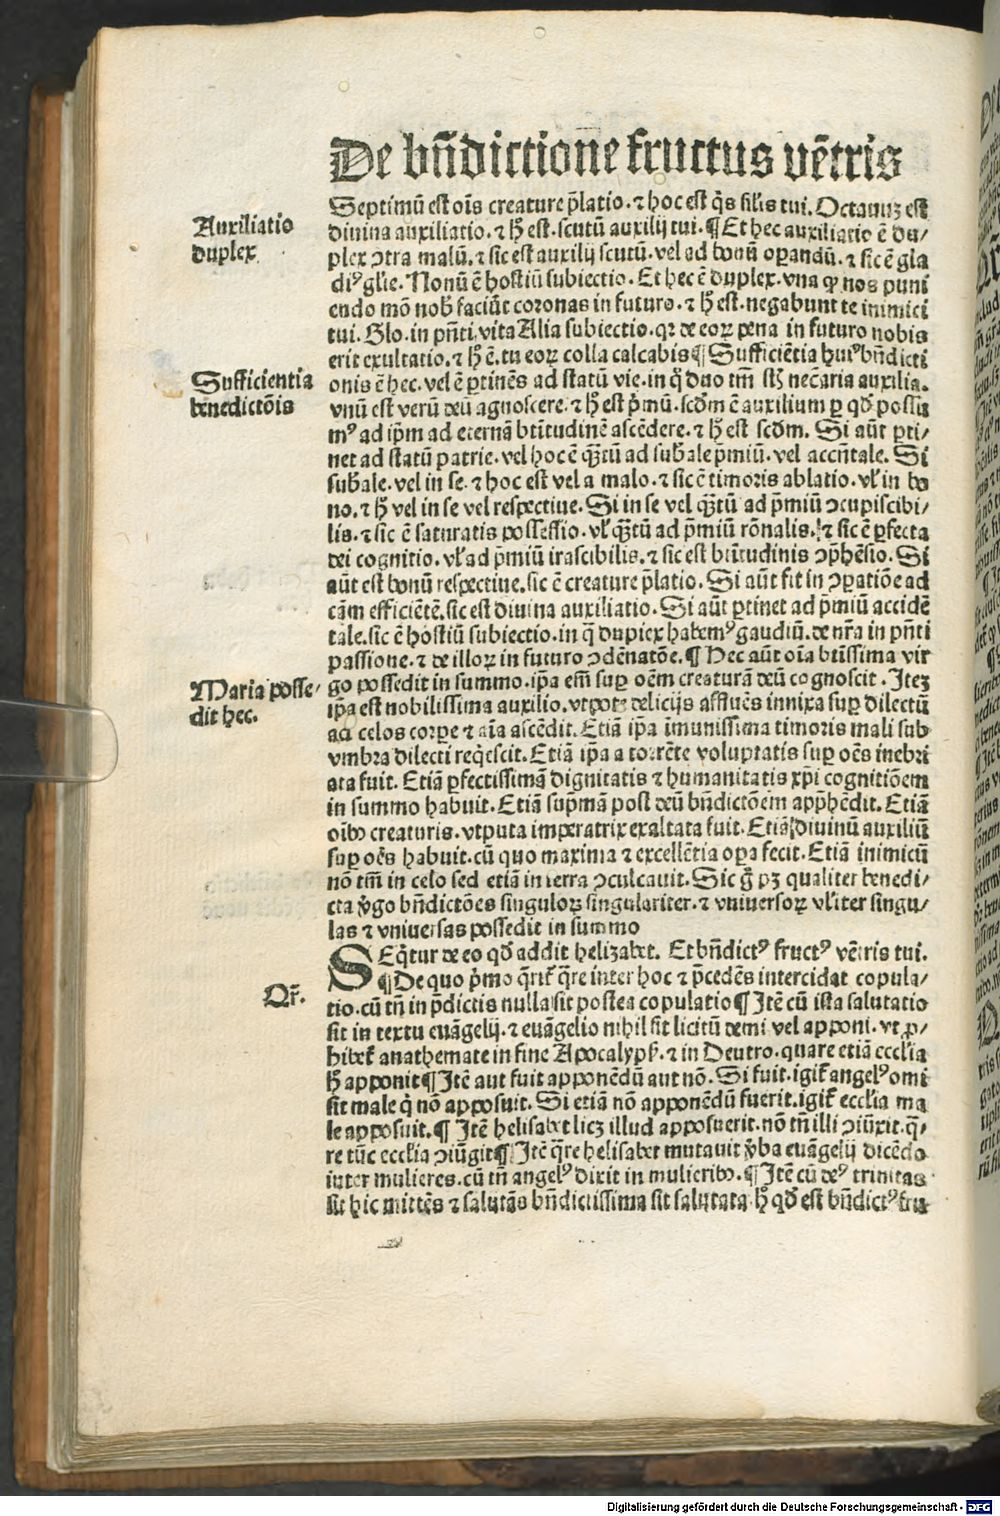 De bñdictione fructus vẽtris
Auxiliatio
duplex
Septimũ est oĩs creature p̃latio. ⁊ hoc est q̃s silis tui. Octauuꝫ est
diuina auxiliatio. ⁊ h̃ est. scutũ auxilij tui. ¶ Et hec auxiliatio ẽ du/
plex ↄtra malũ. ⁊ sic est auxilij scutũ. vel ad bonũ oꝑandũ. ⁊ sic ẽ gla
diꝰ glie. Nonũ ẽ hostiũ subiectio. Et hec ẽ duplex. vna qꝛ nos puni
endo mõ nob̃ faciũt coronas in futuro. ⁊ h̃ est. negabunt te inimici
tui. Glo. in pñti vita Alia subiectio. qꝛ de eoꝝ pena in futuro nobis
erit exultatio. ⁊ h̃ ẽ. tu eoꝝ colla calcabis ¶ Sufficiẽtia huiꝰ bñdicti
Sufficientia
benedictõis
onis ẽ hec. vel ẽ ꝑtinẽs ad statũ vie. in q̃ duo tm̃ st̃ nec̃aria auxilia.
vnũ est verũ deũ agnoscere. ⁊ h̃ est p̃mũ. scd̃m ẽ auxilium ꝑ qd̃ possu
mꝰ ad ip̃m ad eternã btĩtudinẽ ascẽdere. ⁊ h̃ est scd̃m. Si aũt ꝑti/
net ad statũ patrie. vel hoc ẽ q̃ꝫtũ ad sub̃ale p̃miũ. vel accñtale. Si
sub̃ale. vel in se. ⁊ hoc est vel a malo. ⁊ sic ẽ timoris ablatio. vl̃ in bo
no. ⁊ h̃ vel in se vel respectiue. Si in se vel q̃ꝫtũ ad p̃miũ ↄcupiscibi/
lis. ⁊ sic ẽ saturatis possessio. vl̃ q̃ꝫtũ ad p̃miũ rõnalis. ⁊ sic ẽ ꝑfecta
dei cognitio. vl̃ ad p̃miũ irascibilis. ⁊ sic est btĩtudinis ↄp̃hẽsio. Si
aũt est bonũ respectiue. sic ẽ creature p̃latio. Si aũt fit in ↄꝑatiõe ad
cãm efficiẽtẽ. sic est diuina auxiliatio. Si aũt ꝑtinet ad p̃miũ accidẽ
tale. sic ẽ hostiũ subiectio. in q̃ duplex habemꝰ gaudiũ. de nr̃a in pñti
passione. ⁊ de illoꝝ in futuro ↄdẽnatõe. ¶ Hec aũt oĩa btĩssima vir
Maria posse/
dit hec.
go possedit in summo. ip̃a em̃ suꝑ oẽm creaturã deũ cognoscit. Iteꝫ
ip̃a est nobilissima auxilio. vtpote delicijs affluẽs innixa suꝑ dilectũ
ad celos corꝑe ⁊ aĩa ascẽdit. Etiã ip̃a ĩmunissima timoris mali sub
vmbra dilecti req̃escit. Etiã ip̃a a torrẽte voluptatis suꝑ oẽs inebri
ata fuit. Etiã ꝑfectissimã dignitatis ⁊ humanitatis xp̃i cognitiõem
in summo habuit. Etiã sup̃mã post deũ bñdictõem app̃hẽdit. Etiã
oĩbꝰ creaturis. vtputa imperatrix exaltata fuit. Etiã diuinũ auxiliũ
suꝑ oẽs habuit. cũ quo maxima ⁊ excellẽtia oꝑa fecit. Etiã inimicũ
nõ tm̃ in celo sed etiã in terra ↄculcauit. Sic g̃ pꝫ qualiter benedi/
cta v̓go bñdictões singuloꝝ singulariter. ⁊ vniuersoꝝ vl̃iter singu/
las ⁊ vniuersas possedit in summo
SEq̃tur de eo qd̃ addit helizabet. Et bñdictꝰ fructꝰ vẽtris tui.
¶ De quo p̃mo q̃rit̃ q̃re inter hoc ⁊ p̃cedẽs intercidat copula/
Qr̃.
tio. cũ tñ in p̃dictis nulla sit postea copulatio ¶ Itẽ cũ ista salutatio
sit in textu euãgelij. ⁊ euãgelio nihil sit licitũ demi vel apponi. vt ꝓ/
hibet̃ anathemate in fine Apocalyps̃. ⁊ in Deutro. quare etiã eccl̃ia
h̃ apponit ¶ Itẽ aut fuit apponẽdũ aut nõ. Si fuit. igit̃ angelꝰ omi
sit male q̃ nõ apposuit. Si etiã nõ apponẽdũ fuerit. igit̃ eccl̃ia ma
le apposuit. ¶ Itẽ helisabet licꝫ illud apposuerit. nõ tñ illi ↄiũxit. q̃/
re tũc eccl̃ia ↄiũgit ¶ Itẽ q̃re helisabet mutauit v̓ba euãgelij dicẽdo
inter mulieres. cũ tñ angelꝰ dixit in mulieribꝰ. ¶ Itẽ cũ deꝰ trinitas
sit hic mittẽs ⁊ salutãs bñdictissima sit salutata h̃ qd̃ est bñdictꝰ fru
Digitalisierung gefördert durch die Deutsche Forschungsgemeinschaft - DFG